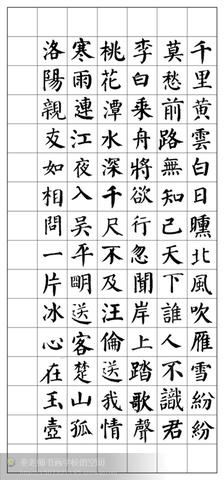 千里黄雲白日曛北風吹雁雪紛紛
莫愁前路無知己天下誰人不識君
李白乘舟將欲行忽聞岸上踏歌聲
桃花潭水深千尺不及汪倫送我情
寒雨連江夜入吳平明送客楚山孤
洛陽親友如相問一片冰心在玉壺
老师书画学校的空间